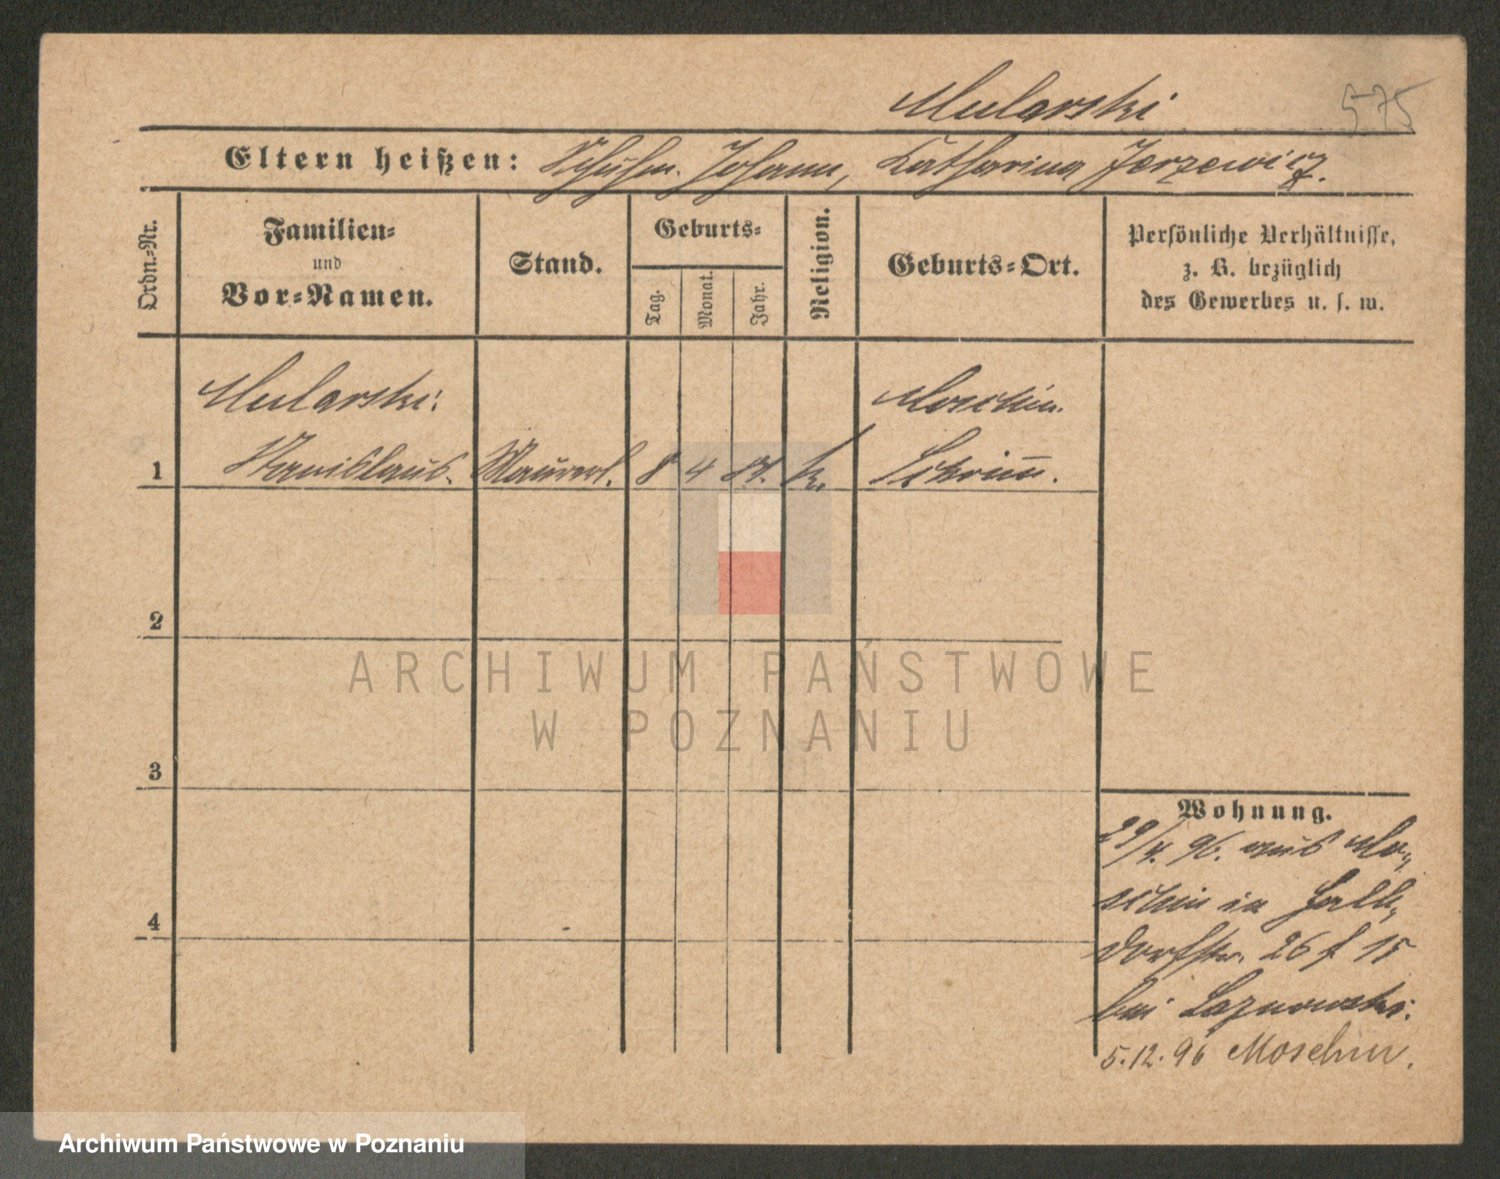 Mularski
575
Eltern heißen: Schuhm. Johann, Katharina Jerzewicz.
Ordn.-Nr.
Familien-
und
Vor-Namen.
Stand.
Geburts-
Tag.
Monat.
Jahr.
Religion.
Geburts-Ort.
Persönliche Verhältnisse,
z. B. bezüglich
des Gewerbes u. s. w.
Mularski.
Moschin.
1 Stanislaus. Maurerl. 8 4 k. Schrimm.
2
3
4
Wohnung.
29/4. 96. aus Mo-
schin in Hall-
dorfstr. 26 15
bei Laznowski.
5.12.96 Moschin.
ARCHIWUM PAŃSTWOWE
W POZNANIU
Archiwum Państwowe w Poznaniu